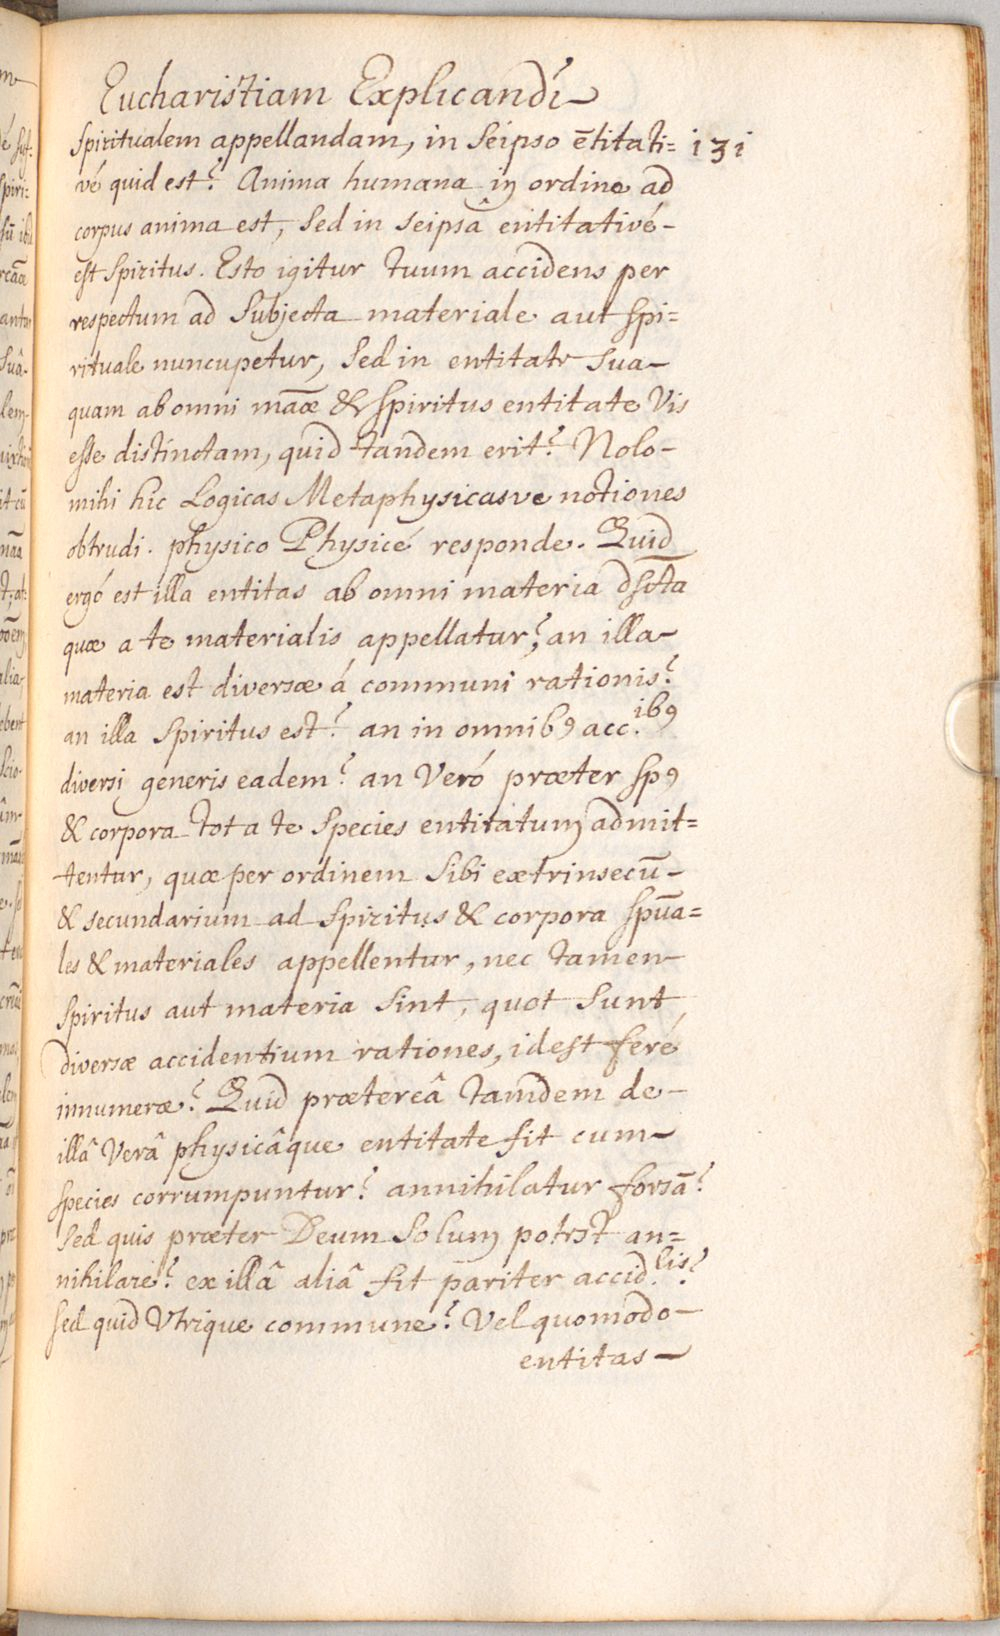 Eucharistiam Explicandi
spiritualem appellandam, in seipso ētitati= 131
vé quid est? Anima humana in ordine ad
corpus anima est, sed in seipsâ entitativé
est spiritus. Esto igitur tuum accidens per
respectum ad subjecta materiale aut spi=
rituale nuncupetur, sed in entitate sua
quam ab omni māæ & spiritus entitate vis
esse distinctam, quid tandem erit? Nolo
mihi hic Logicas Metaphysicasve notiones
obtrudi. physico Physicé responde. Quid
ergó est illa entitas ab omni materia dscta
quæ a te materialis appellatur? an illa
materia est diversæ á communi rationis?
an illa spiritus est? an in omnibꝯ acc.ibꝯ
diversi generis eadem? an veró præter spꝯ
& corpora tot a te species entitatum admit=
tentur, quæ per ordinem sibi extrinsecū
& secundarium ad spiritus & corpora spūa=
les & materiales appellentur, nec tamen
spiritus aut materia sint, quot sunt
diversæ accidentium rationes, idest feré
innumeræ? Quid prætereâ tamdem de
illâ verâ physicâque entitate fit cum
species corrumpuntur? annihilatur forsā?
sed quis præter Deum solum potest an=
nihilare? ex illâ aliâ fit pariter accid.lis?
sed quid utrique commune? vel quomodo
entitas